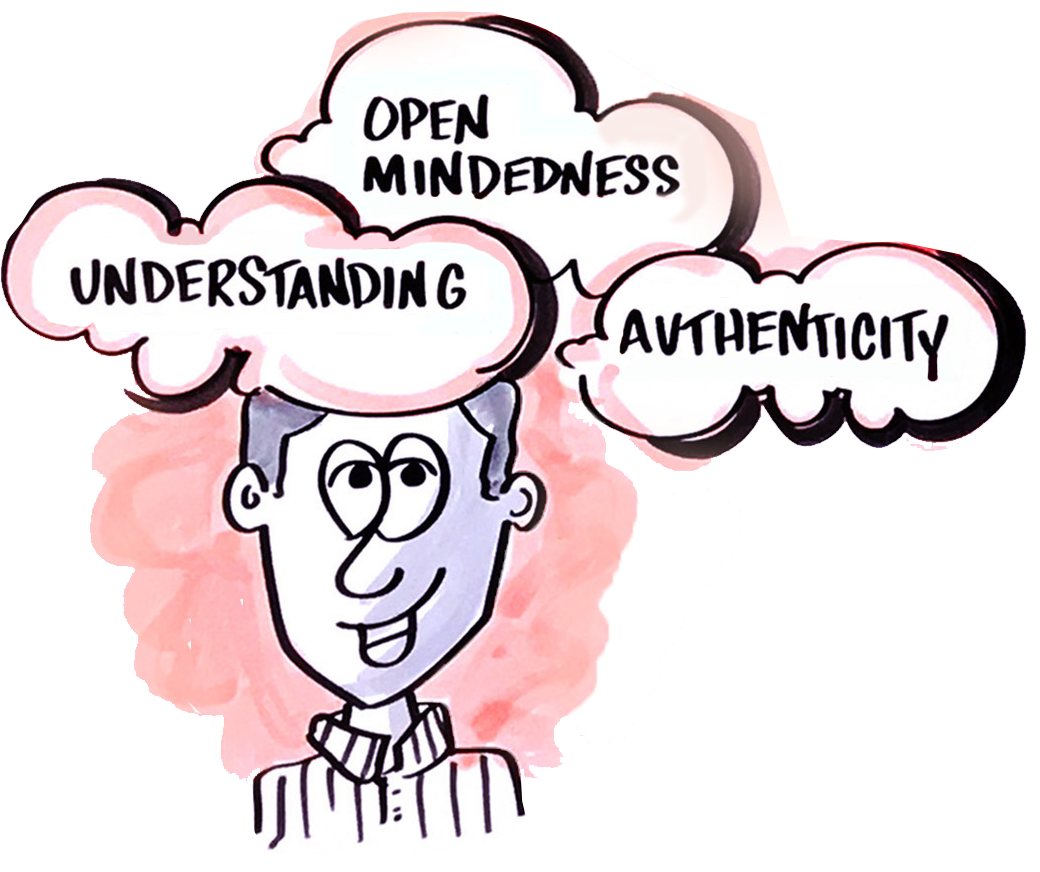 OPEN
MINDEDNESS
UNDERSTANDING
AUTHENTICITY